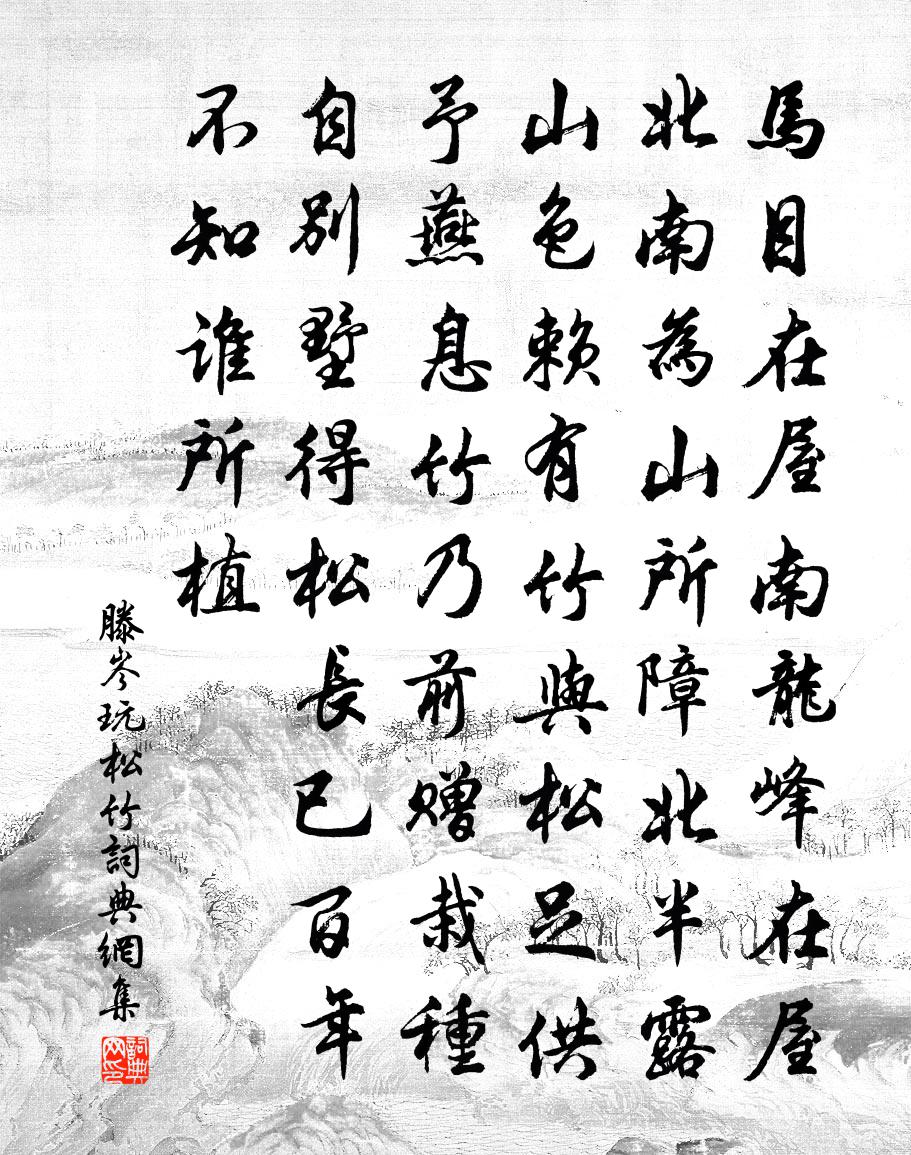 馬目在屋南龍峰在屋
北南為山所障北半露
山色賴有竹與松足供
予燕息竹乃前贈栽種
自別墅得松長已百年
不知誰所植
滕岑玩松竹詞典網集
詞典网印